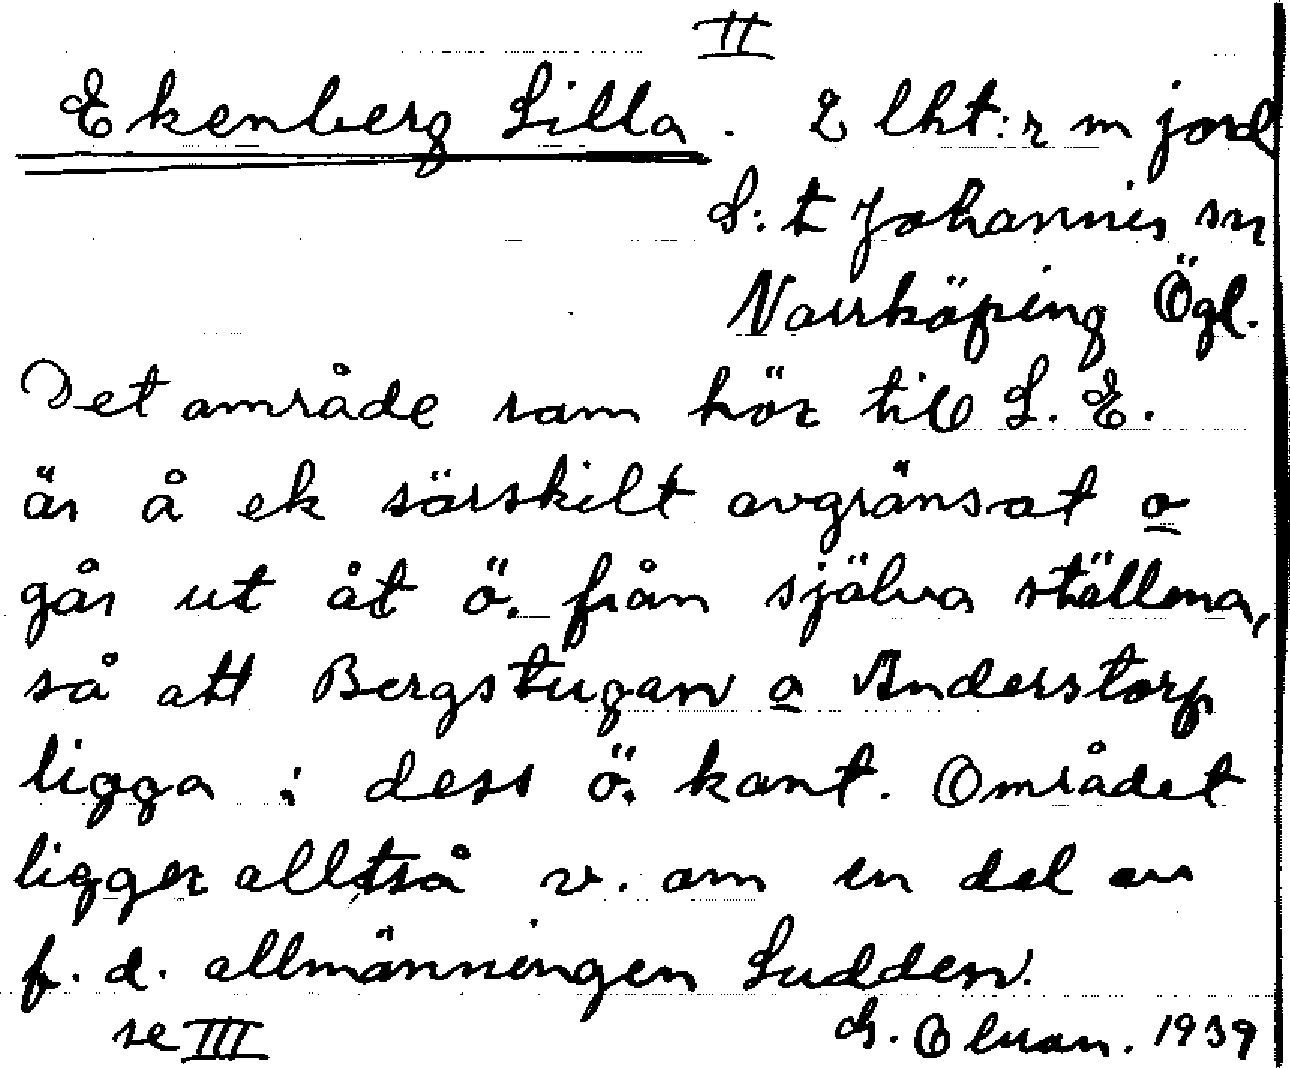 II
Ekenberg Lilla. 2 lht:r m jord
S:t Johannis sn
Norrköping Ögl.
Det område som hör till L. E.
är å ek särskilt avgränsat o
går ut åt ö. från själva ställena,
så att Bergstugan o Anderstorp
ligga i dess ö. kant. Området
ligger alltså v. om en del av
f. d. allmänningen Sudden.
se III 1939